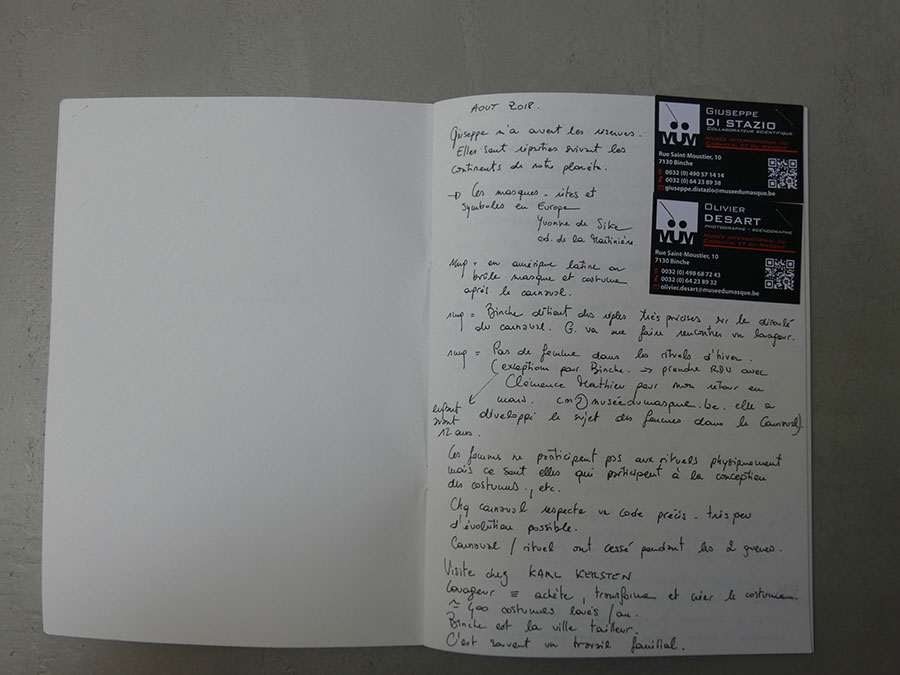 AOUT 2018.
Giuseppe m'a ouvert les réserves.
Elles sont réparties suivant les
continents de notre planète.
→ Les masques - rites et
symboles en Europe
Yvonne de Sike
ed. de la Martinière
en amérique latine on
brûle masque et costume
après le carnaval.
Binche détient des règles très précises sur le déroulé
du carnaval. G. va me faire rencontrer un louageur.
Pas de femme dans les rituels d'hiver.
(exceptions pour Binche. → prendre RDV avec
Clémence Mathieu pour mon retour en
mars. cm@muséedumasque.be. elle a
développé le sujet des femmes dans le Carnaval)
enfant
avant
12 ans.
Les femmes ne participent pas aux rituels physiquement
mais ce sont elles qui participent à la conception
des costumes, etc.
Chq carnaval respecte un code précis. très peu
d'évolution possible.
Carnaval / rituel ont cessé pendant les 2 guerres.
Visite chez KARL KERSTEN
Louageur = achète, transforme et créer le costume
≃ 400 costumes loués /an.
Binche est la ville tailleur.
C'est souvent un travail familial.
MUM
GIUSEPPE
DI STAZIO
COLLABORATEUR SCIENTIFIQUE
MUSÉE INTERNATIONAL DU
CARNAVAL ET DU MASQUE
Rue Saint-Moustier, 10
7130 Binche
0032 (0) 490 57 14 14
0032 (0) 64 23 89 38
giuseppe.distazio@museedumasque.be
MUM
OLIVIER
DESART
PHOTOGRAPHE - SCÉNOGRAPHE
MUSÉE INTERNATIONAL DU
CARNAVAL ET DU MASQUE
Rue Saint-Moustier, 10
7130 Binche
0032 (0) 498 68 72 43
0032 (0) 64 23 89 32
olivier.desart@museedumasque.be